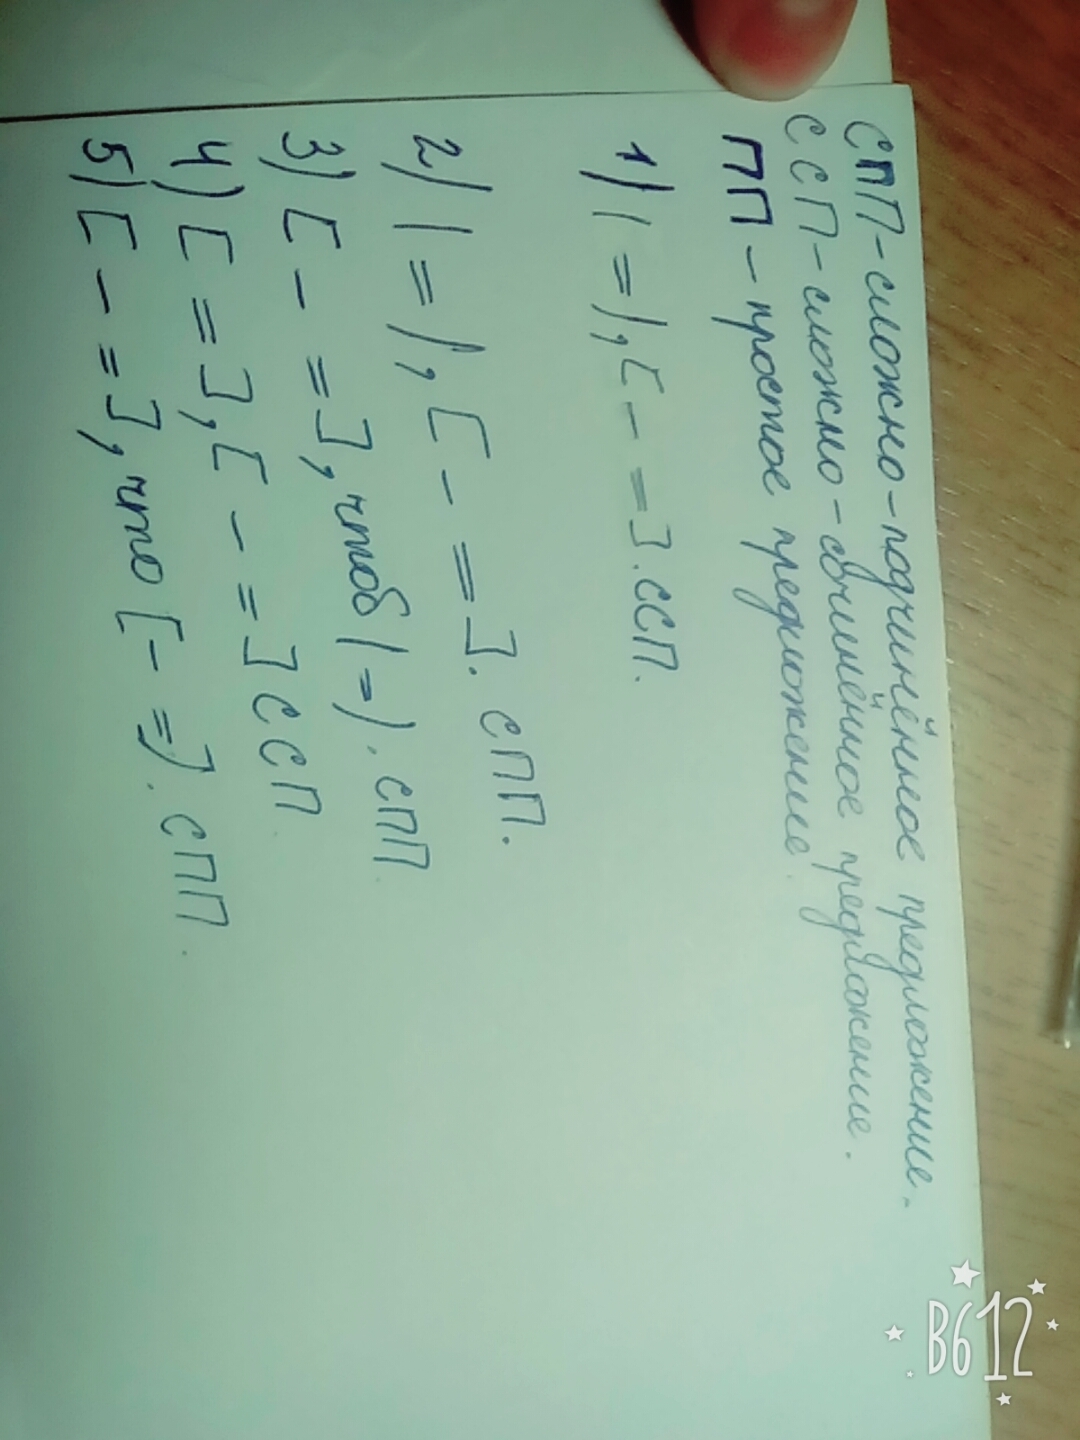 СПП-сложно-подчинённое предложение.
ССП-сложно-сочинённое предложение.
ПП-простое предложение.
1) (=), [-=]. ССП.
2) (=), [-=]. СПП.
3) [-=], чтоб (=). СПП.
4) [=], [-=] ССП.
5) [-=], что [-=]. СПП.
B612